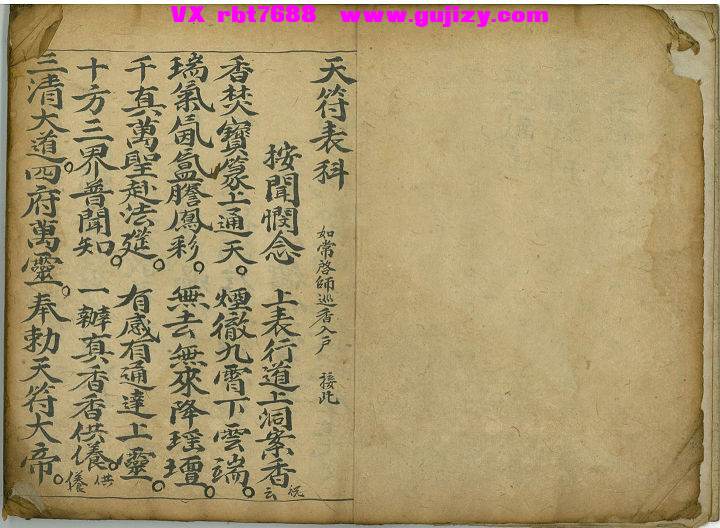 VX rbt7688 www.gujizy.com
天符表科
如常啓師巡香入戶 接此
按聞憫念 上表行道上洞案香 侊云
香焚寶篆上通天。煙徹九霄下雲端。
瑞氣氤氳騰鳳彩。無去無來降瑶壇。
千真萬聖赴法筵。有感有通達上靈。
十方三界普聞知。一辦真香香供儀。供儀
三清大道。四府萬靈。奉勅天符大帝。